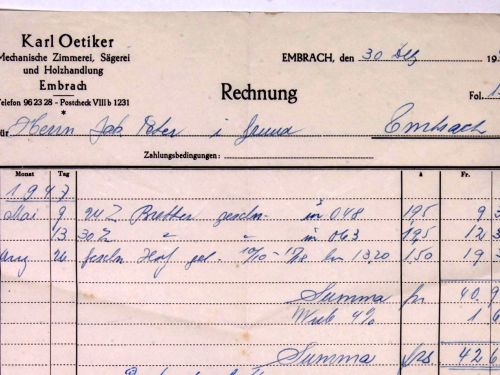 Karl Oetiker
Mechanische Zimmerei, Sägerei
und Holzhandlung
Embrach
Telefon 96 23 28 - Postcheck VIII b 1231
*
EMBRACH, den 30 Dez 19
Rechnung
Fol. 1
für Herrn Jak. Peter i Embrach
Zahlungsbedingungen:
Monat Tag à Fr.
1947
Mai 9. Bretter geschn. 0 48 195 9 3
13. 30 " " 0 63 195 12 3
Aug 26. 10/10 - 13.20 150 19 3
Summa fr 40 9
Wust 4% 1 6
Summa frs. 42 6